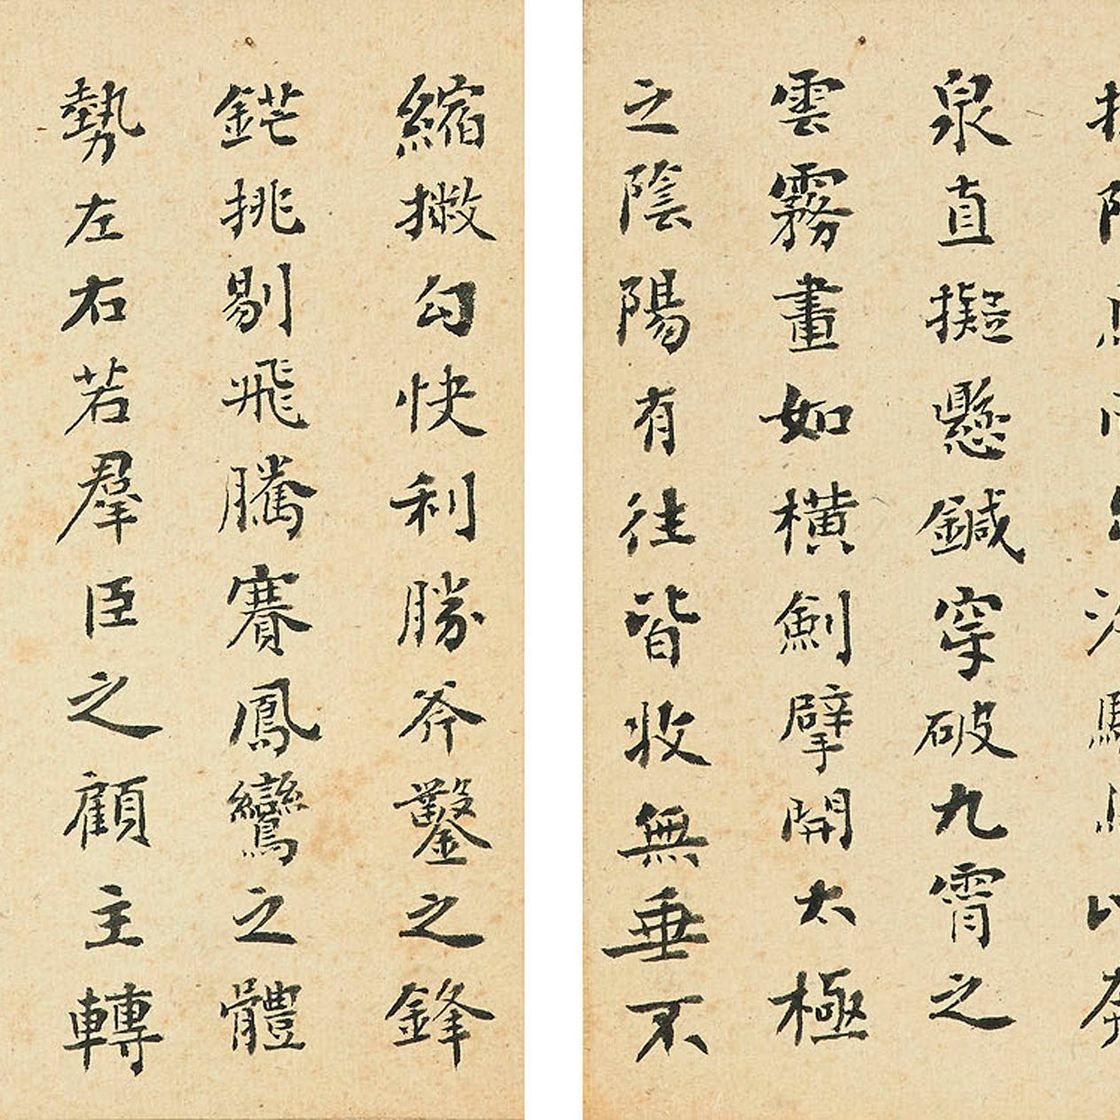 泉直擬懸鍼穿破九霄之
雲霧畫如橫劍擘開太極
之陰陽有往皆收無垂不
縮撇勾快利勝斧鑿之鋒
鋩挑剔飛騰賽鳳鸞之體
勢左右若羣臣之顧主轉